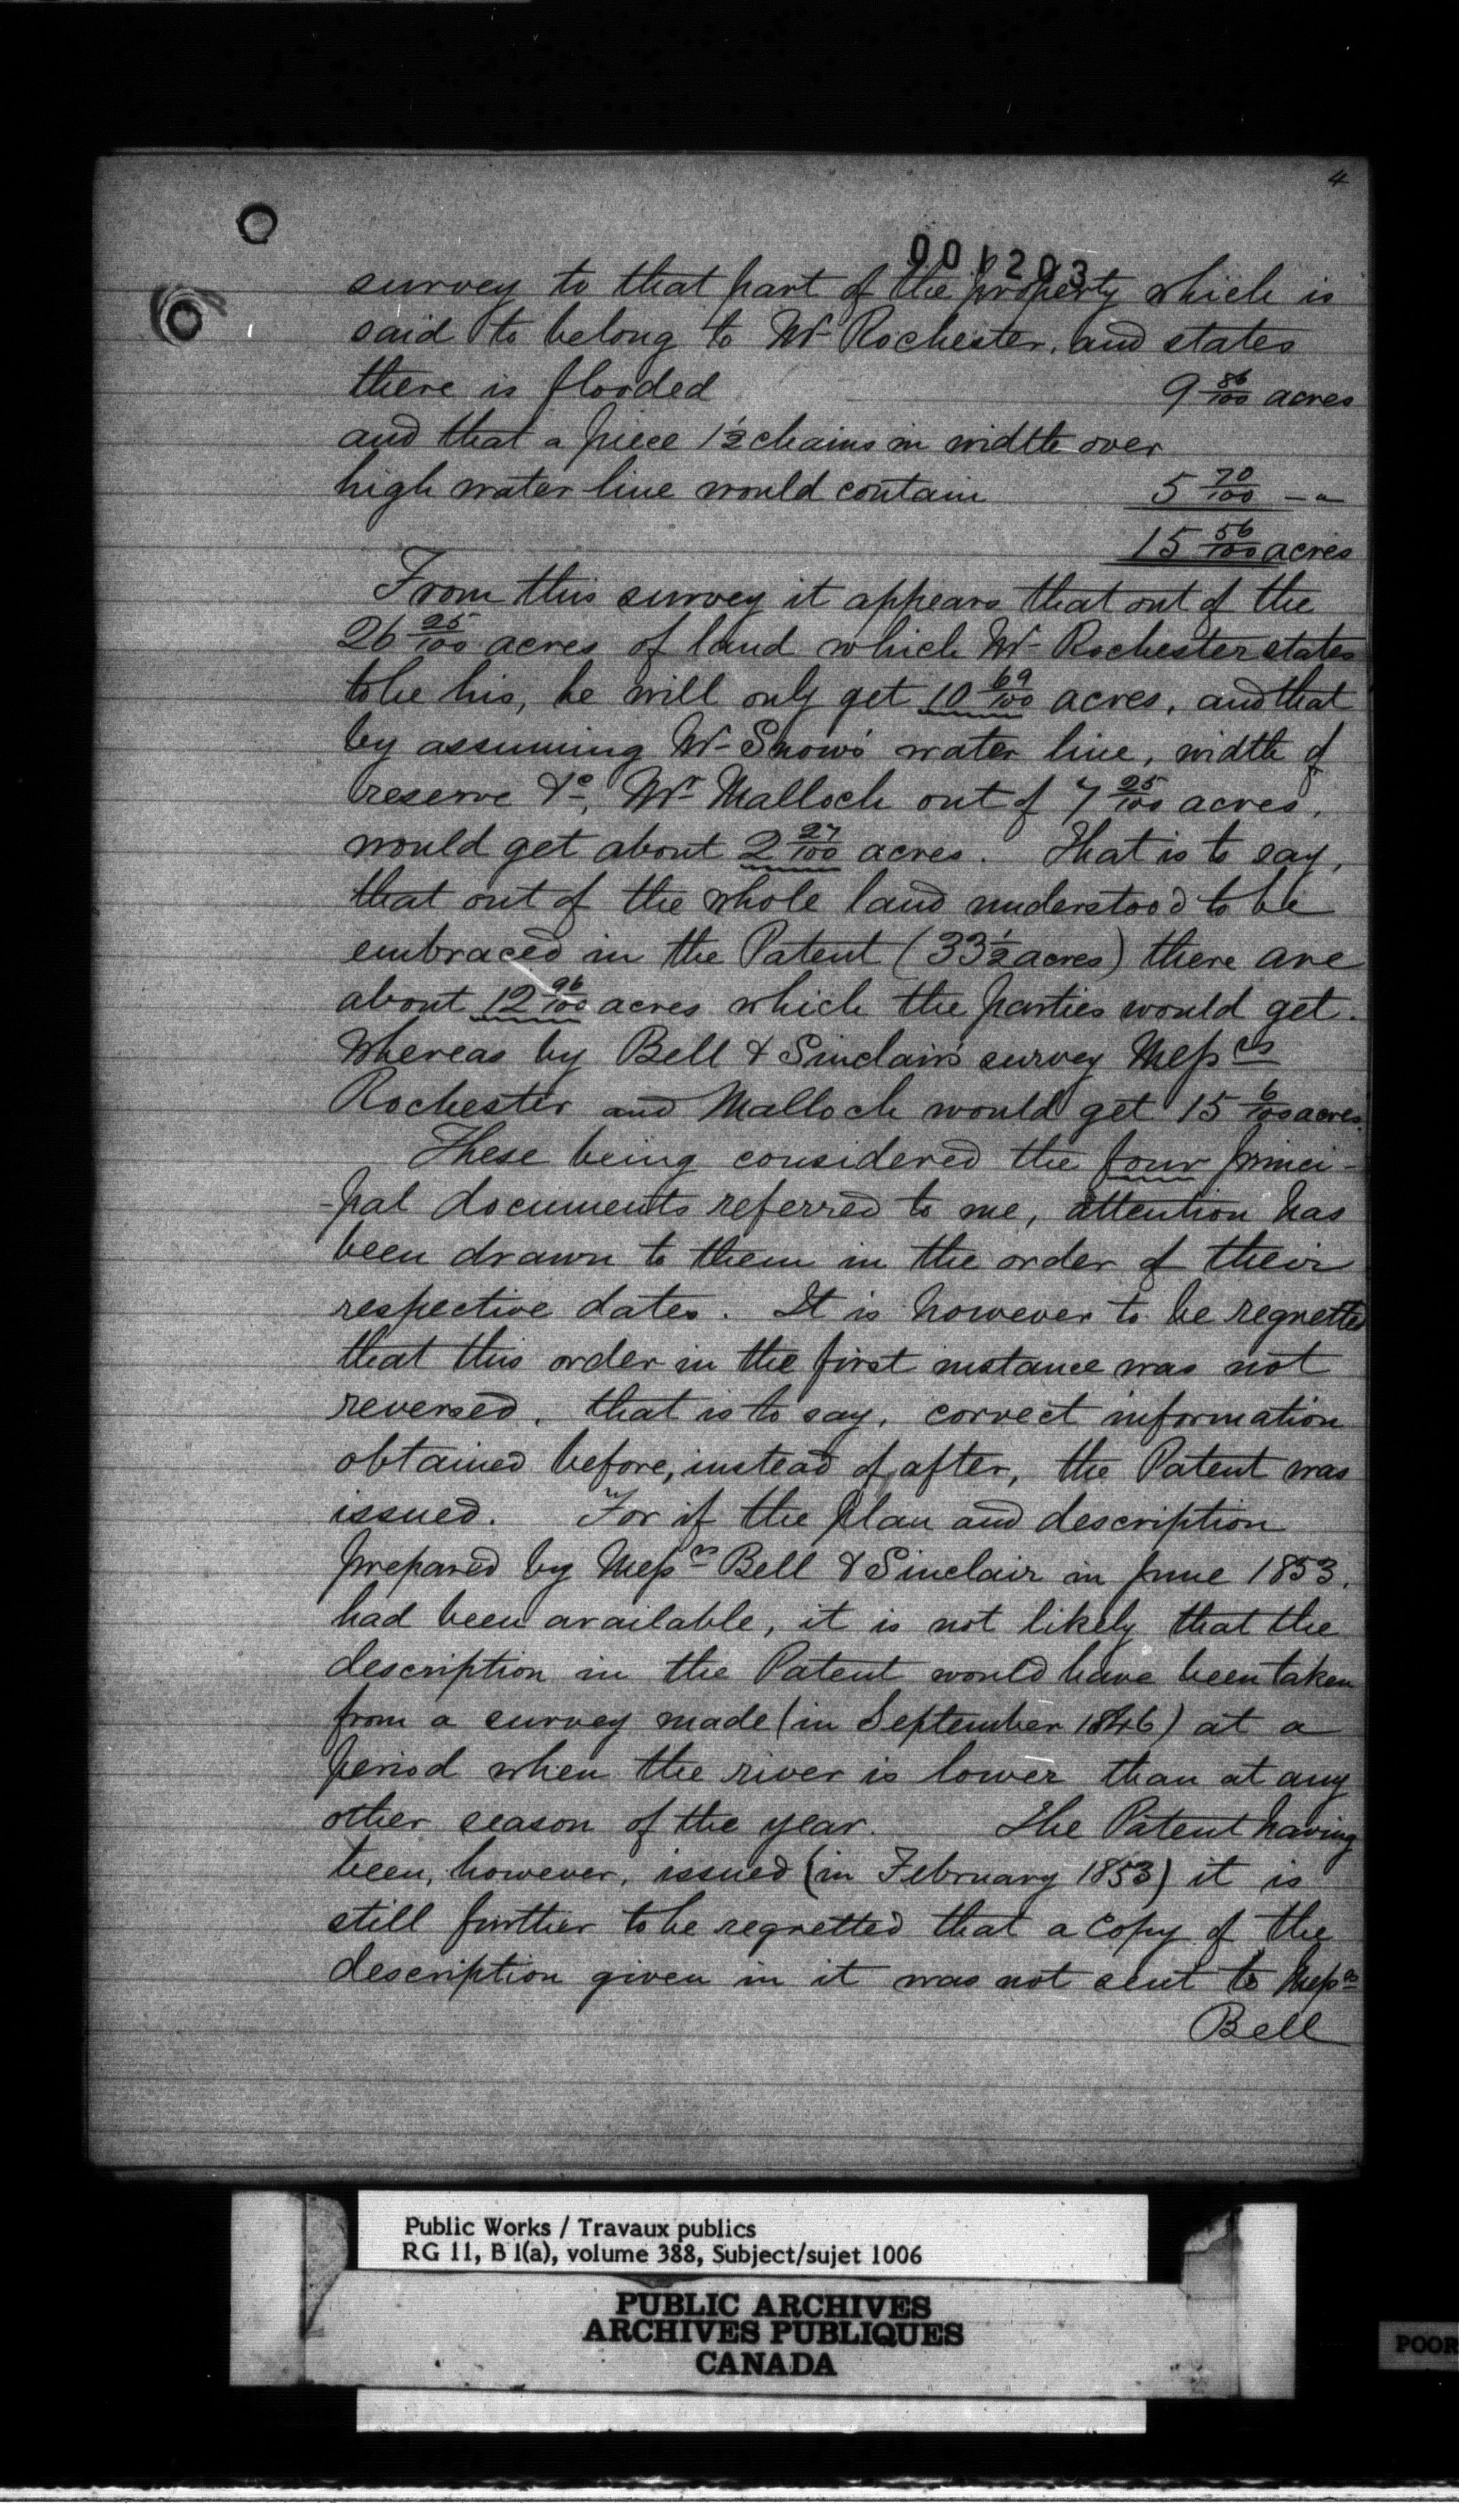 4
001203
survey to that part of the property which is
said to belong to Mr Rochester, and states
there is flooded 9 86/100 acres
and that a piece 1½ chains in width over
high water line would contain 5 70/100 – "
15 56/100 acres
From this survey it appears that out of the
26 25/100 acres of land which Mr Rochester states
to be his, he will only get 10 69/100 acres, and that
by assuming Mr Snow's water line, width of
reserve &c, Mr Malloch out of 7 25/100 acres,
would get about 2 27/100 acres. That is to say,
that out of the whole land understood to be
embraced in the Patent (33½ acres) there are
about 12 96/100 acres which the parties would get.
Whereas by Bell & Sinclair's survey Messrs
Rochester and Malloch would get 15 6/100 acres.
These being considered the four princi-
-pal documents referred to me, attention has
been drawn to them in the order of their
respective dates. It is however to be regretted
that this order in the first instance was not
reversed, that is to say, correct information
obtained before, instead of after, the Patent was
issued. For if the plan and description
prepared by Messrs Bell & Sinclair in June 1853,
had been available, it is not likely that the
description in the Patent would have been taken
from a survey made (in September 1846) at a
period when the river is lower than at any
other season of the year. The Patent having
been, however, issued (in February 1853) it is
still further to be regretted that a copy of the
description given in it was not sent to Messrs
Bell
Public Works / Travaux publics
RG 11, B 1(a), volume 388, Subject/sujet 1006
PUBLIC ARCHIVES
ARCHIVES PUBLIQUES
CANADA
POOR